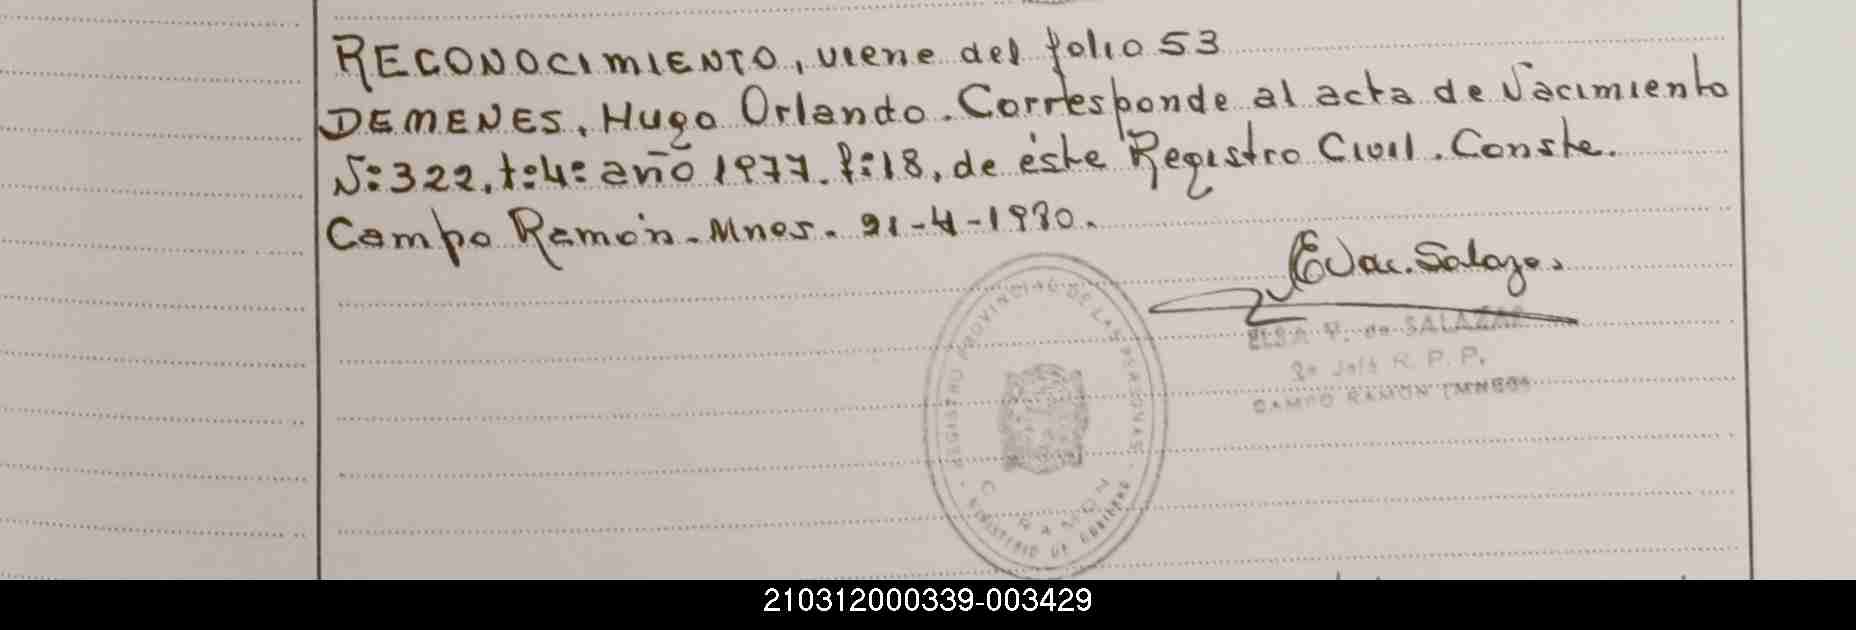 RECONOCIMIENTO, viene del folio 53
DEMENES, Hugo Orlando. Corresponde al acta de Nacimiento
N:322, t:4: año 1977. f:18, de éste Registro Civil. Conste.
Campo Ramón. Mnes. 21-4-1980.
ELSA V. de SALAZAR
R. P. P.
CAMPO RAMON (MNES)
REGISTRO PROVINCIAL DE LAS PERSONAS
C. RAMON
MINISTERIO DE GOBIERNO
210312000339-003429